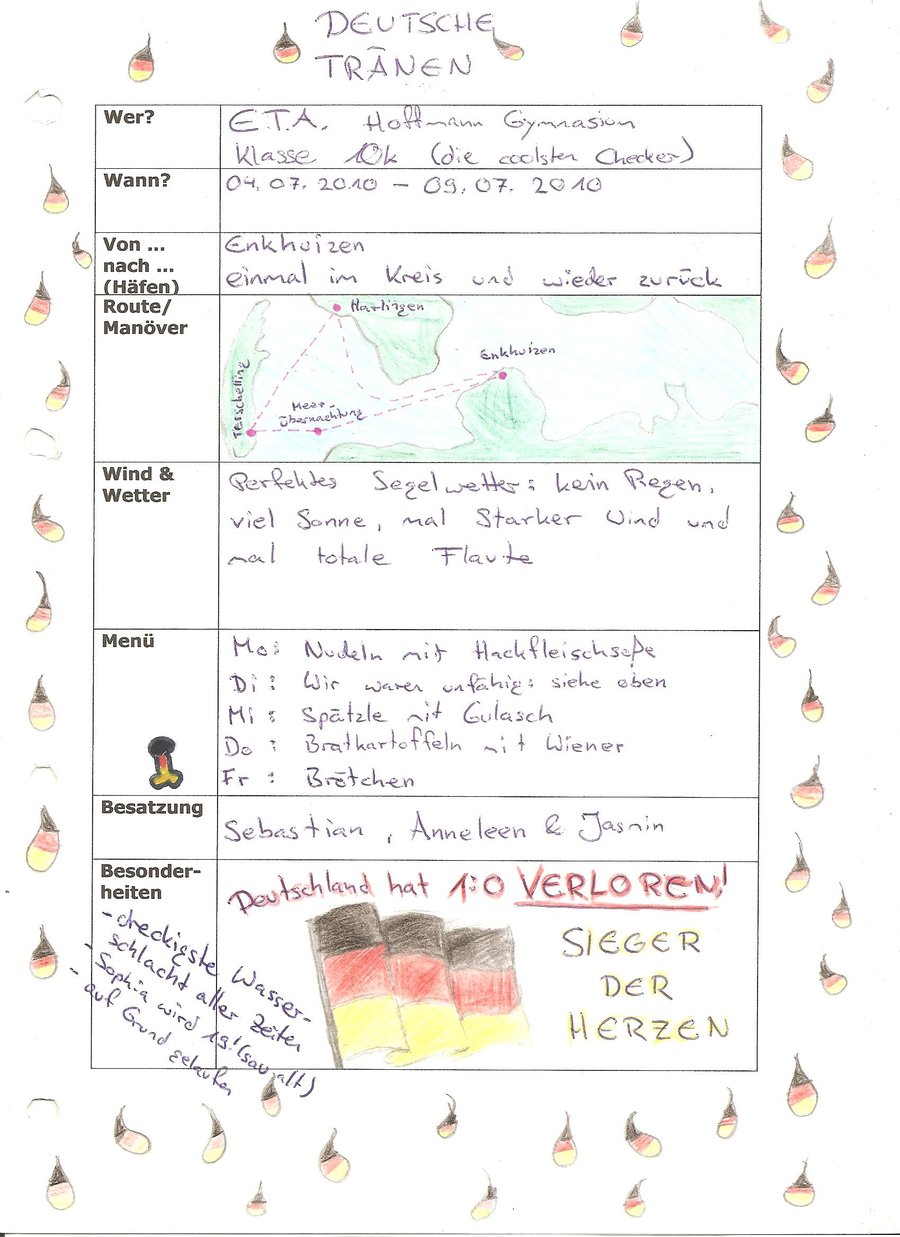 DEUTSCHE
TRÄNEN
Wer?
E.T.A. Hoffmann Gymnasion
Klasse 10k (die coolsten Checker)
Wann?
04.07.2010 – 09.07.2010
Von ...
nach ...
(Häfen)
Enkhuizen
einmal im Kreis und wieder zurück
Route/
Manöver
Harlingen
Enkhuizen
Terschelling
Meer-
übernachtung
Wind &
Wetter
Perfektes Segelwetter: kein Regen,
viel Sonne, mal Starker Wind und
mal totale Flaute
Menü
Mo: Nudeln mit Hackfleischsoße
Di: Wir waren unfähig: siehe oben
Mi: Spätzle mit Gulasch
Do: Bratkartoffeln mit Wiener
Fr: Brötchen
Besatzung
Sebastian, Anneleen & Jasmin
Besonder-
heiten
- dreckigste Wasser-
schlacht aller Zeiten
- Sophia wird 19! (sau alt)
- auf Grund gelaufen
Deutschland hat 1:0 VERLOREN!
SIEGER
DER
HERZEN